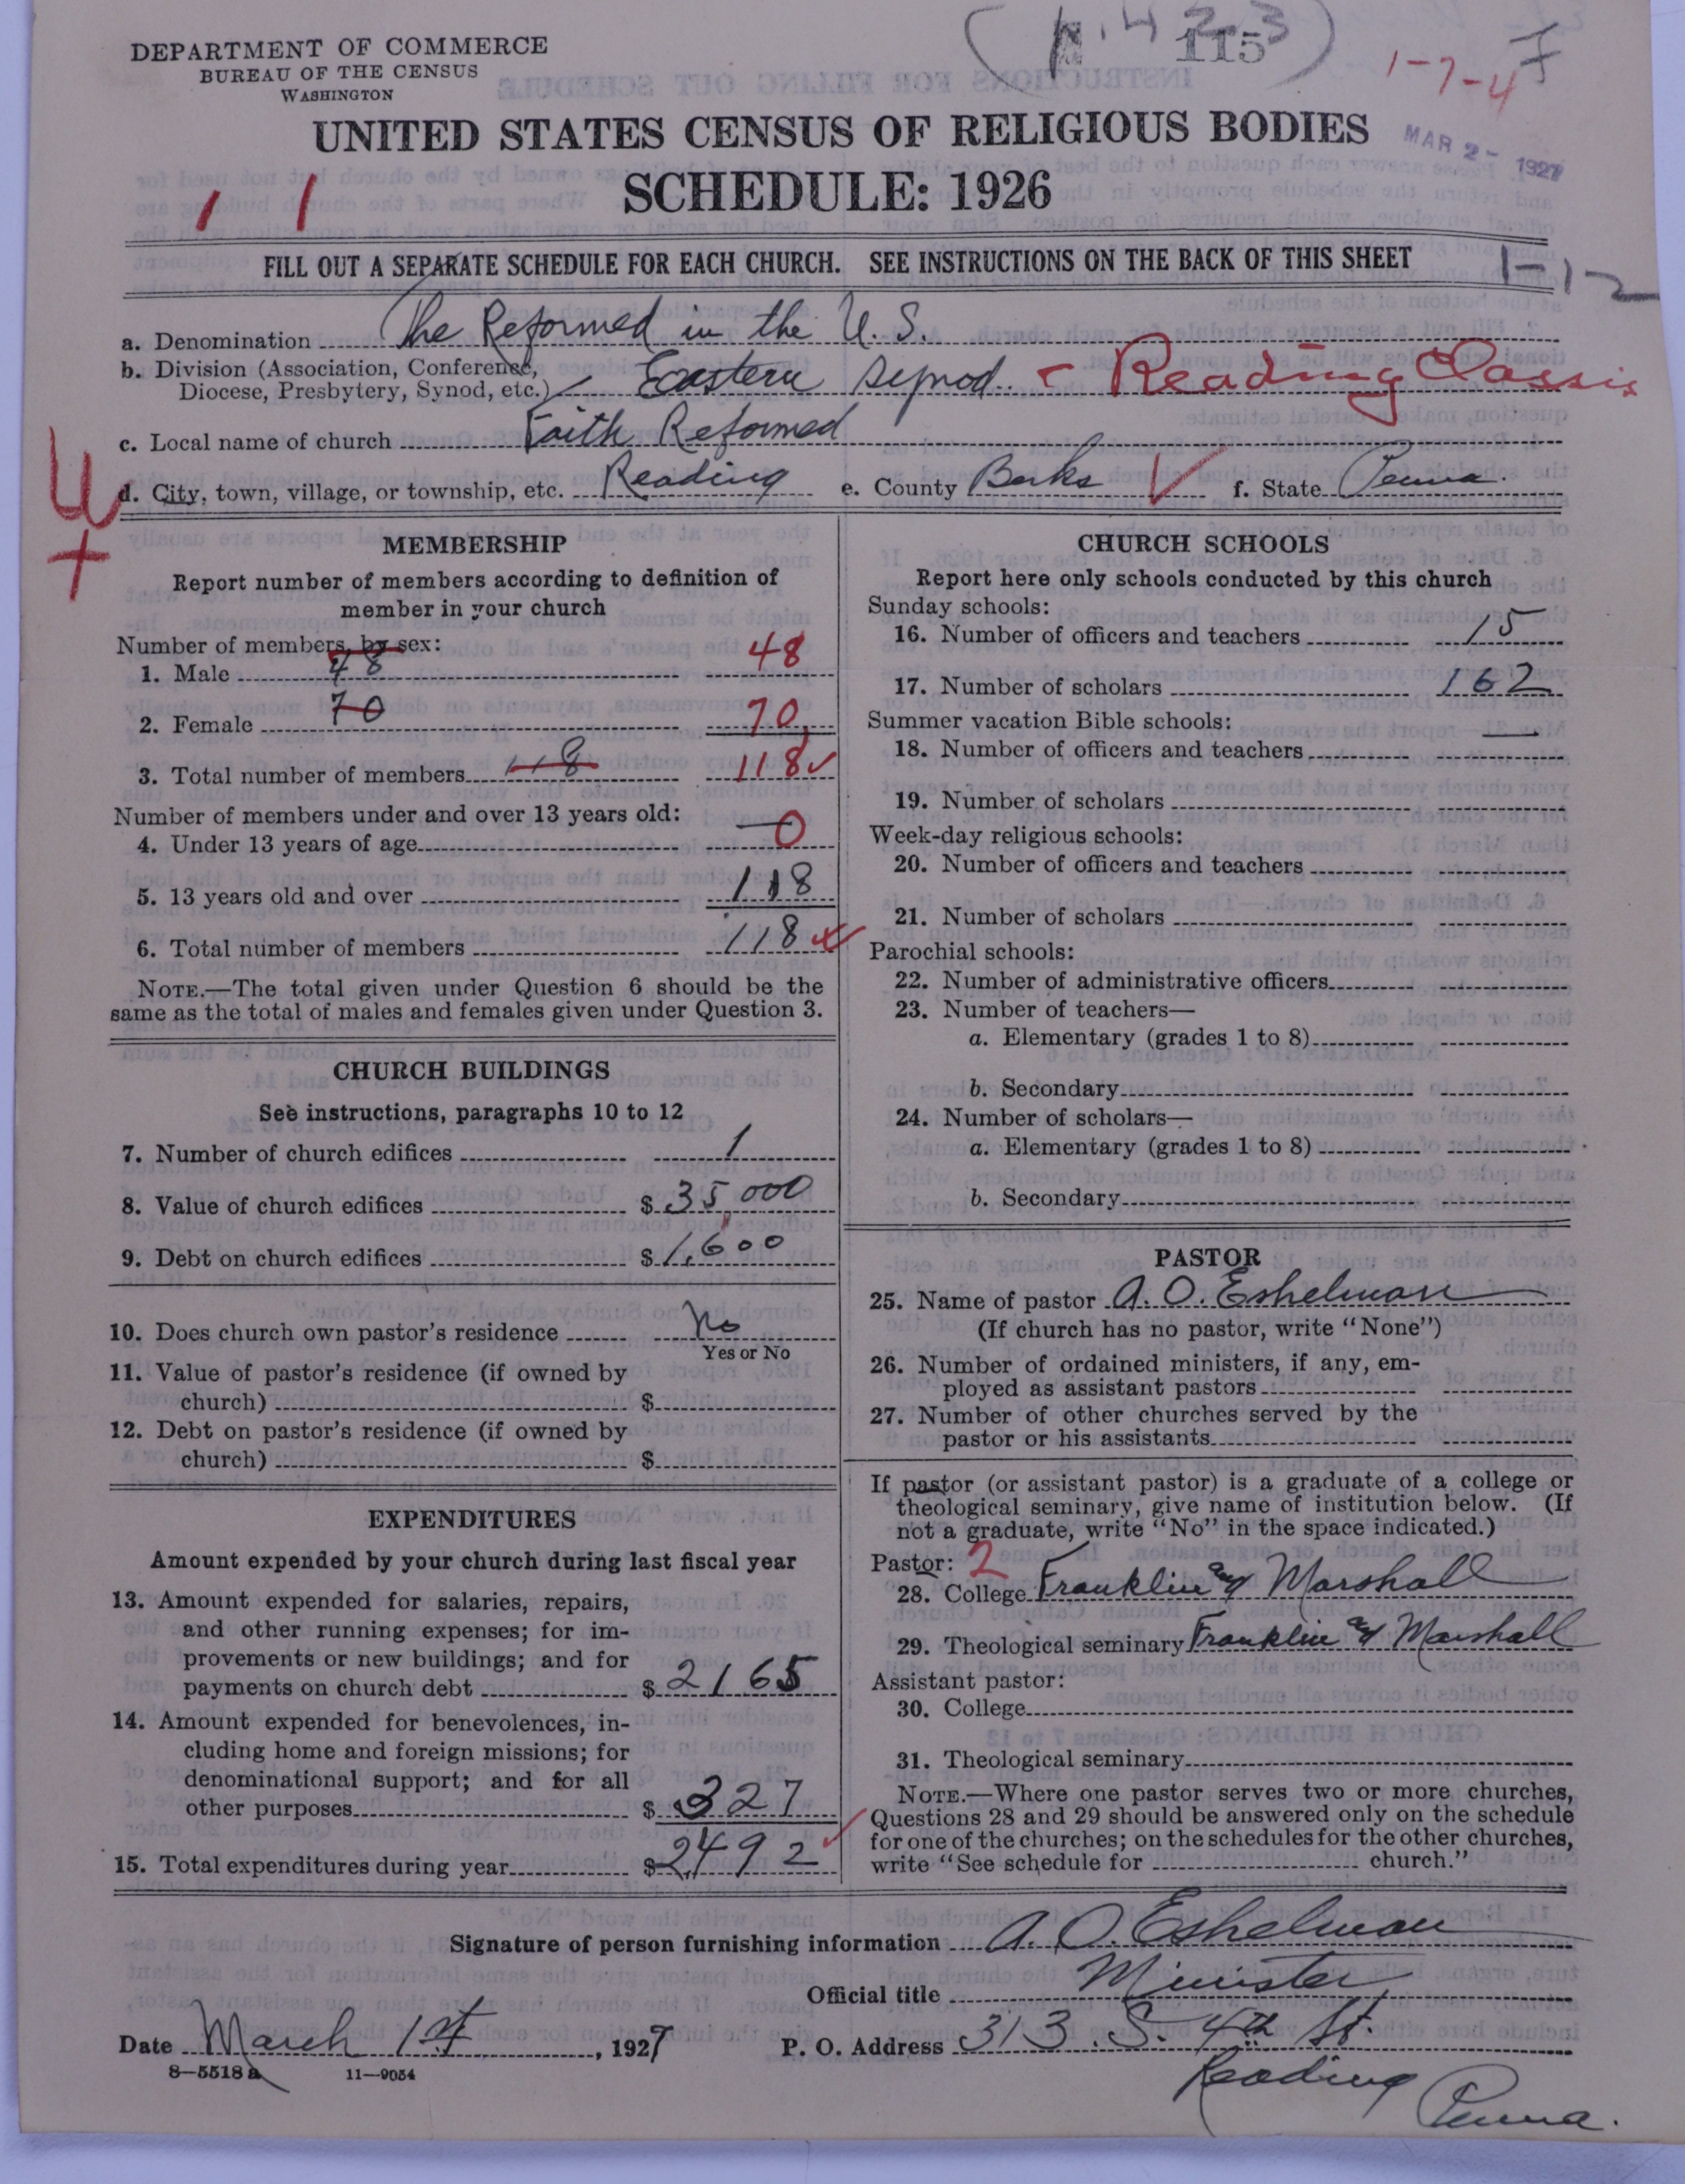 DEPARTMENT OF COMMERCE
BUREAU OF THE CENSUS
WASHINGTON
115
1-7-4
UNITED STATES CENSUS OF RELIGIOUS BODIES
MAR 2- 1927
SCHEDULE: 1926
FILL OUT A SEPARATE SCHEDULE FOR EACH CHURCH. SEE INSTRUCTIONS ON THE BACK OF THIS SHEET
1-1-2
a. Denomination The Reformed in the U. S.
b. Division (Association, Conference,
Diocese, Presbytery, Synod, etc.) Eastern Synod - Reading Classis
c. Local name of church Faith Reformed
d. City, town, village, or township, etc. Reading e. County Berks f. State Penna.
MEMBERSHIP
Report number of members according to definition of
member in your church
Number of members, by sex:
1. Male 48 48
2. Female 70 70
3. Total number of members 118 118
Number of members under and over 13 years old:
4. Under 13 years of age 0
5. 13 years old and over 118
6. Total number of members 118
NOTE.—The total given under Question 6 should be the
same as the total of males and females given under Question 3.
CHURCH BUILDINGS
See instructions, paragraphs 10 to 12
7. Number of church edifices 1
8. Value of church edifices $ 35,000
9. Debt on church edifices $ 1,600
10. Does church own pastor's residence No
Yes or No
11. Value of pastor's residence (if owned by
church) $
12. Debt on pastor's residence (if owned by
church) $
EXPENDITURES
Amount expended by your church during last fiscal year
13. Amount expended for salaries, repairs,
and other running expenses; for im-
provements or new buildings; and for
payments on church debt $ 2165
14. Amount expended for benevolences, in-
cluding home and foreign missions; for
denominational support; and for all
other purposes $ 327
15. Total expenditures during year $ 2492
CHURCH SCHOOLS
Report here only schools conducted by this church
Sunday schools:
16. Number of officers and teachers 15
17. Number of scholars 162
Summer vacation Bible schools:
18. Number of officers and teachers
19. Number of scholars
Week-day religious schools:
20. Number of officers and teachers
21. Number of scholars
Parochial schools:
22. Number of administrative officers
23. Number of teachers—
a. Elementary (grades 1 to 8)
b. Secondary
24. Number of scholars—
a. Elementary (grades 1 to 8)
b. Secondary
PASTOR
25. Name of pastor A. O. Eshelman
(If church has no pastor, write "None")
26. Number of ordained ministers, if any, em-
ployed as assistant pastors
27. Number of other churches served by the
pastor or his assistants
If pastor (or assistant pastor) is a graduate of a college or
theological seminary, give name of institution below. (If
not a graduate, write "No" in the space indicated.)
Pastor: 2
28. College Franklin and Marshall
29. Theological seminary Franklin and Marshall
Assistant pastor:
30. College
31. Theological seminary
NOTE.—Where one pastor serves two or more churches,
Questions 28 and 29 should be answered only on the schedule
for one of the churches; on the schedules for the other churches,
write "See schedule for church."
Signature of person furnishing information A. O. Eshelman
Official title Minister
Date March 1st, 1927 P. O. Address 313 S. 4th St.
8-5518a 11-9054
Reading Penna.